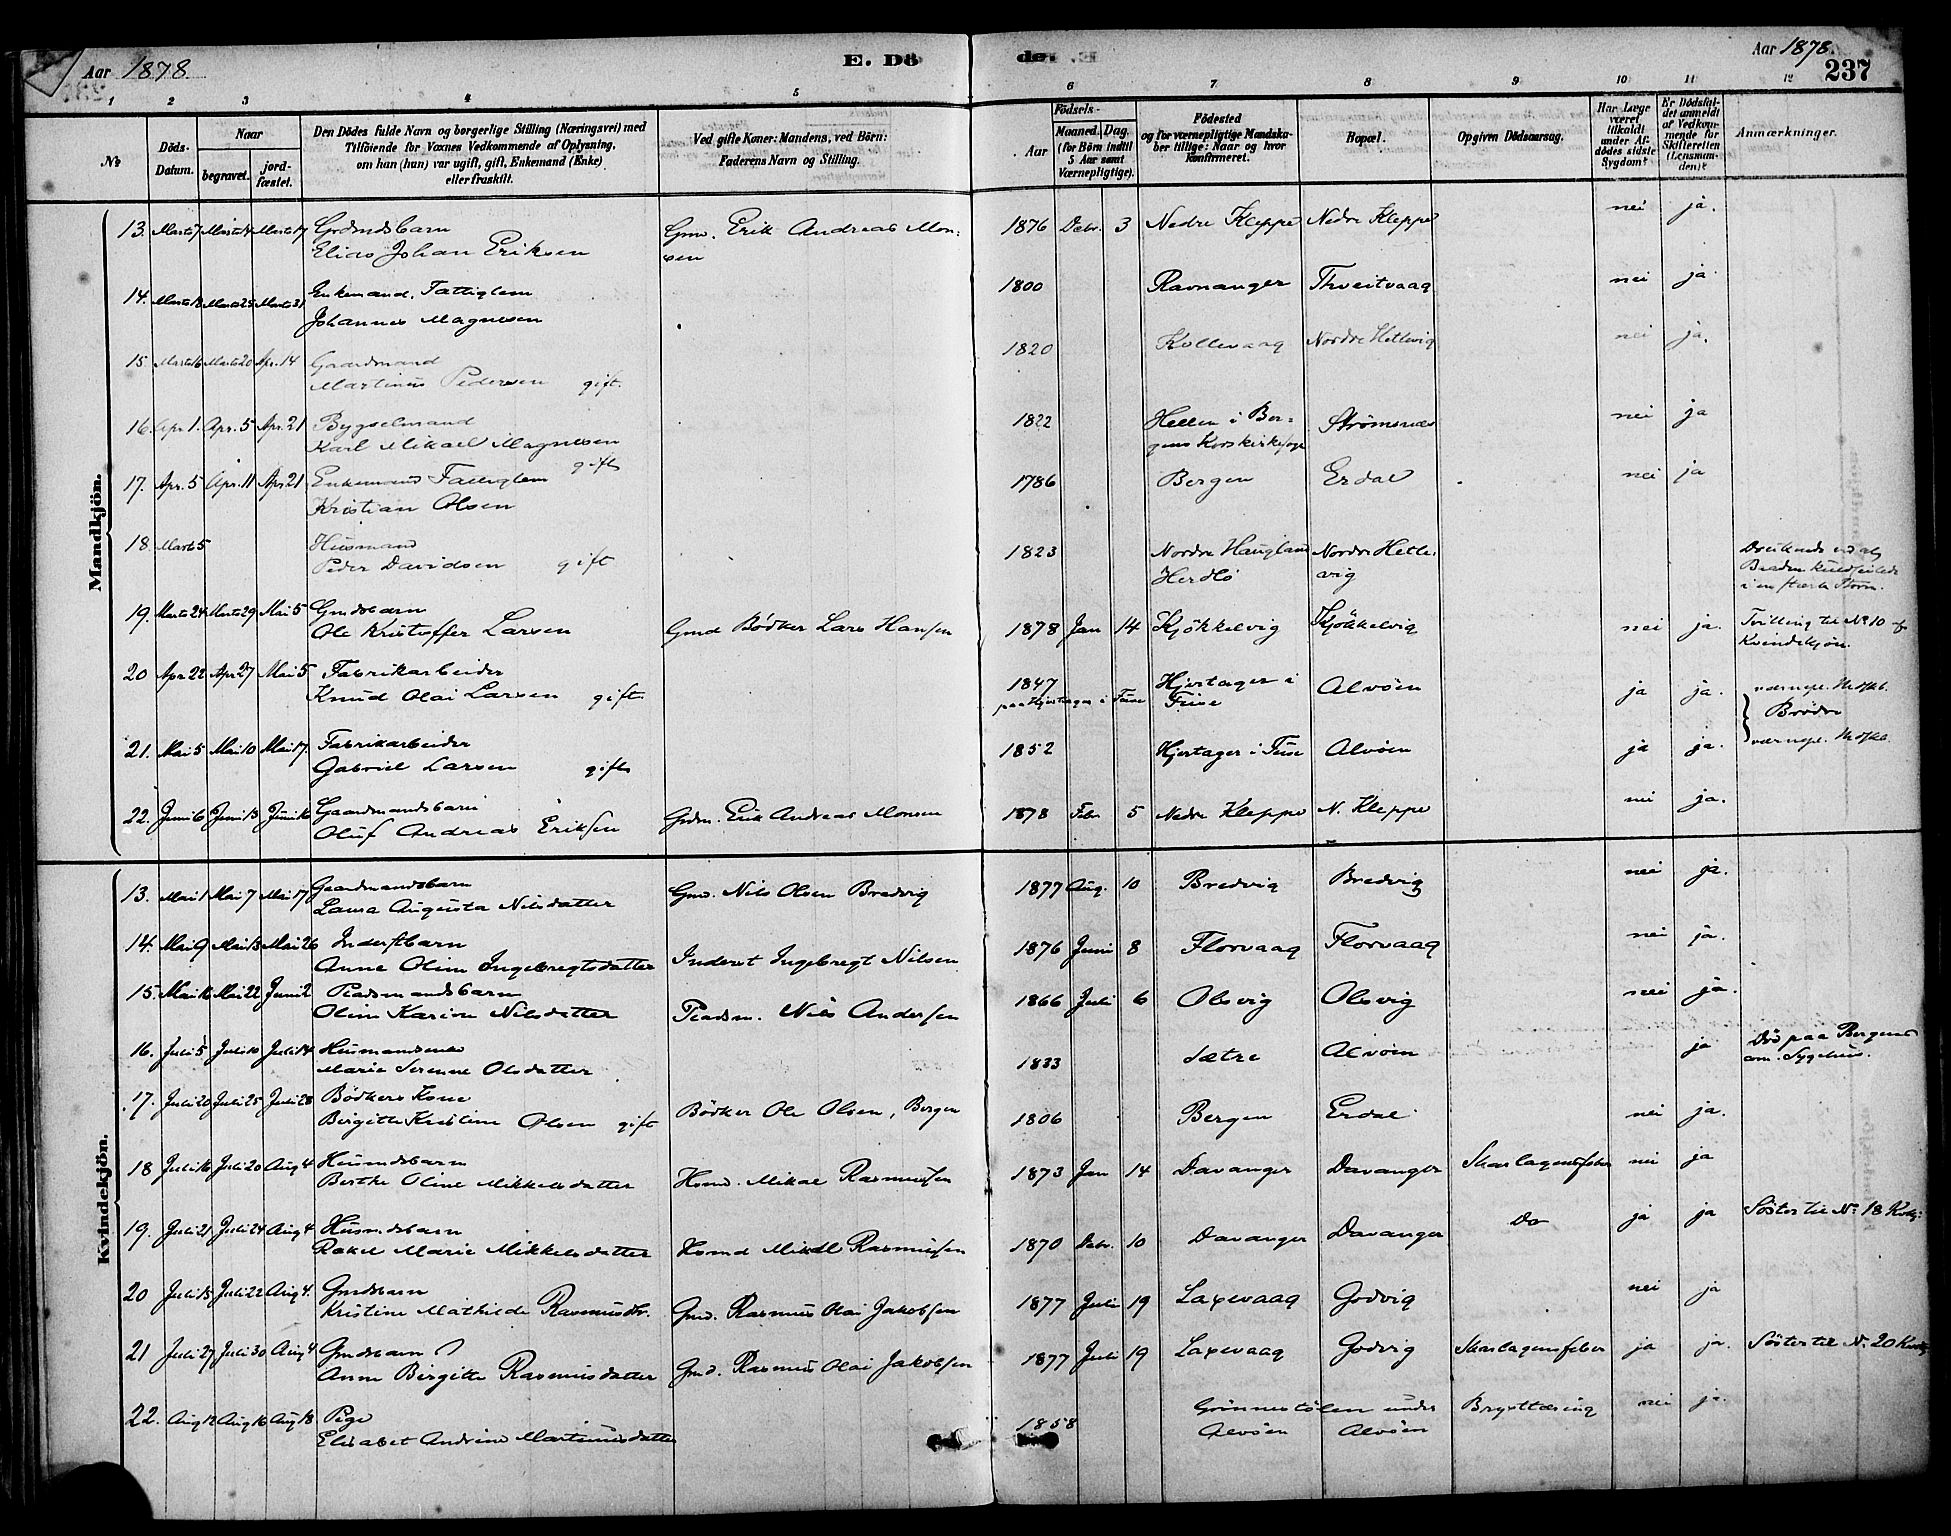 Aar 1878. E. Dö de. Aar 1878.
237
1 2 3 4 5 6 7 8 9 10 11 12
№ Döds-Datum. Naar begravet. jordfæstet. Den Dödes fulde Navn og borgerlige Stilling (Næringsvei) med Tilföiende for Voxnes Vedkommende af Oplysning, om han (hun) var ugift, gift, Enkemand (Enke) eller fraskilt. Ved gifte Koner: Mandens, ved Börn: Faderens Navn og Stilling. Födsels- Aar Maaned. Dag. (for Börn indtil 5 Aar samt Værnepligtige). Födested og for værnepligtige Mandskaber tillige: Naar og hvor konfirmeret. Bopæl. Opgiven Dödsaarsag. Har Læge været tilkaldt under Afdödes sidste Sygdom? Er Dödsfaldet anmeldt af Vedkommende for Skifteretten (Lensmanden)? Anmærkninger.
Mandkjön.
13. Marts 7 Marts 14 Marts 17 Grdmdsbarn Elias Johan Eriksen Gmd. Erik Andreas Monsen 1876 Debr. 3 Nedre Kleppe Nedre Kleppe nei ja.
14. Marts 18 Marts 25 Marts 31 Enkemand. Fattiglem Johannes Magnesen 1800 Ravnanger Thveitvaag nei ja.
15. Marts 16 Marts 20 Apr. 14 Gaardmand Martinus Pedersen gift. 1820 Kollevaag Nordre Hettevig nei ja.
16. Apr 1. Apr. 5 Apr. 21 Bygselmand Karl Mikael Magnesen gift 1822 Hellen i Bergens Korskirkesogn Strømsnes nei ja
17. Apr. 5 Apr. 11 Apr 21 Enkemand Fattiglem Kristian Olsen 1786 Bergen Erdal nei ja
18. Marts 5 Husmand Peder Davidsen gift 1823 Nordre Haugland Herdlø Nordre Hettevig Druknede ved at Baaden kuldseilede i en stærk Storm.
19. Marts 24 Marts 29 Mai 5 Gmdsbarn Ole Kristoffer Larsen Gmd Bødker Lars Hansen 1878 Jan 14 Kjøkkelvig Kjøkkelvig nei ja. Tvilling til № 10 af Kvindekjøn.
20 Apr 22 Apr 27 Mai 5 Fabrikarbeider Knud Olai Larsen gift 1847 paa Hjertager i Fuse Hjertager i Fuse Alvøen ja ja. værnepl.
Brødre
21. Mai 5 Mai 10 Mai 17. Fabrikarbeider Gabriel Larsen gift 1852 Hjertager i Fuse Alvøen ja ja. værnepl.
22. Juni 6 Juni 13 Juni 16 Gaardmandsbarn Oluf Andreas Eriksen Grdm. Erik Andreas Monsen 1878 Febr. 5 Nedre Kleppe N. Kleppe nei ja.
Kvindekjön.
13. Mai 1 Mai 7 Mai 17 Gaardmandsbarn Laura Augusta Nilsdatter Gmd. Nils Olsen Bredvig 1877 Aug. 10 Bredvig Bredvig nei ja.
14. Mai 9 Mai 13 Mai 26 Inderstbarn Anne Oline Ingebregtsdatter Inderst Ingebregt Nilsen 1876 Juni 8 Florvaag Florvaag nei ja.
15. Mai 16 Mai 22 Juni 2 Pladsmandsbarn Oline Karine Nilsdatter Pladsm. Nils Andersen 1866 Juli 6 Olsvig Olsvig nei ja.
16. Juli 5 Juli 10 Juli 14 Husmandsenke Marie Serene Olsdatter 1833 Sætre Alvøen ja Død paa Bergens com. Sygehus.
17. Juli 20 Juli 25 Juli 28 Bødkers Kone Birgitte Kristine Olsen gift Bødker Ole Olsen, Bergen 1806 Bergen Erdal nei ja.
18 Juli 16 Juli 20 Aug 4 Husmdsbarn Berthe Oline Mikkelsdatter Hsmd. Mikal Rasmussen 1873 Jan 14 Davanger Davanger Skarlagensfeber nei ja
19. Juli 21 Juli 24 Aug 4 Husmdsbarn Rakel Marie Mikkelsdatter Hsmd Mikal Rasmussen 1870 Debr. 10 Davanger Davanger Do ja ja Søster til № 18 Kvkj:
20 Juli 18 Juli 22 Aug 4. Gmdsbarn Kristine Mathilde Rasmusdtr. Gmd. Rasmus Olai Jakobsen 1877 Juli 19 Laxevaag Godvig nei ja
21 Juli 27 Juli 30 Aug 4 Gmdsbarn Anne Birgitte Rasmusdatter Gmd. Rasmus Olai Jakobsen 1877 Juli 19 Laxevaag Godvig Skarlagensfeber ja ja. Søster til № 20 Kvkj.
22. Aug 12 Aug 16 Aug 18 Pige Elisabet Andrine Martinusdatter 1858 Grønnestølen under Alvøen Alvøen Brysttæring nei ja.